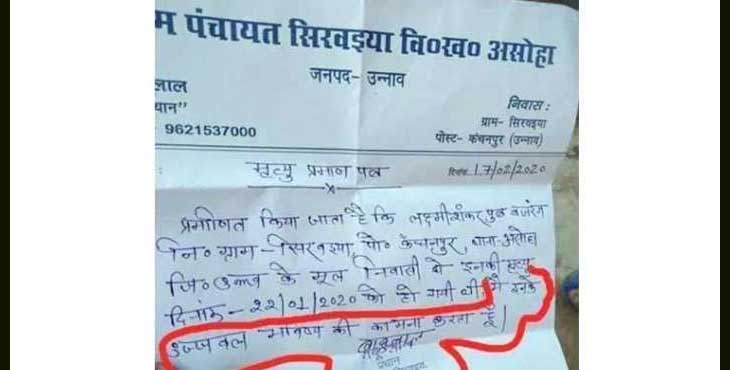 म पंचायत सिरवइया वि०ख० असोहा
जनपद- उन्नाव
लाल
धान"
9621537000
निवास :
ग्राम- सिरवइया
पोस्ट- कंचनपुर (उन्नाव)
मृत्यु प्रमाण पत्र
दिनांक 17/02/2020
x
प्रमाणित किया जाता है कि लक्ष्मीशंकर पुत्र बजरंग
नि० ग्राम- सिरवइया, पो० कंचनपुर, थाना-असोहा
जि० उन्नाव के मूल निवासी थे इनकी मृत्यु
दिनांक- 22/01/2020 को हो गयी थी मै इनके
उज्जवल भविष्य की कामना करता हूँ।
प्रधान